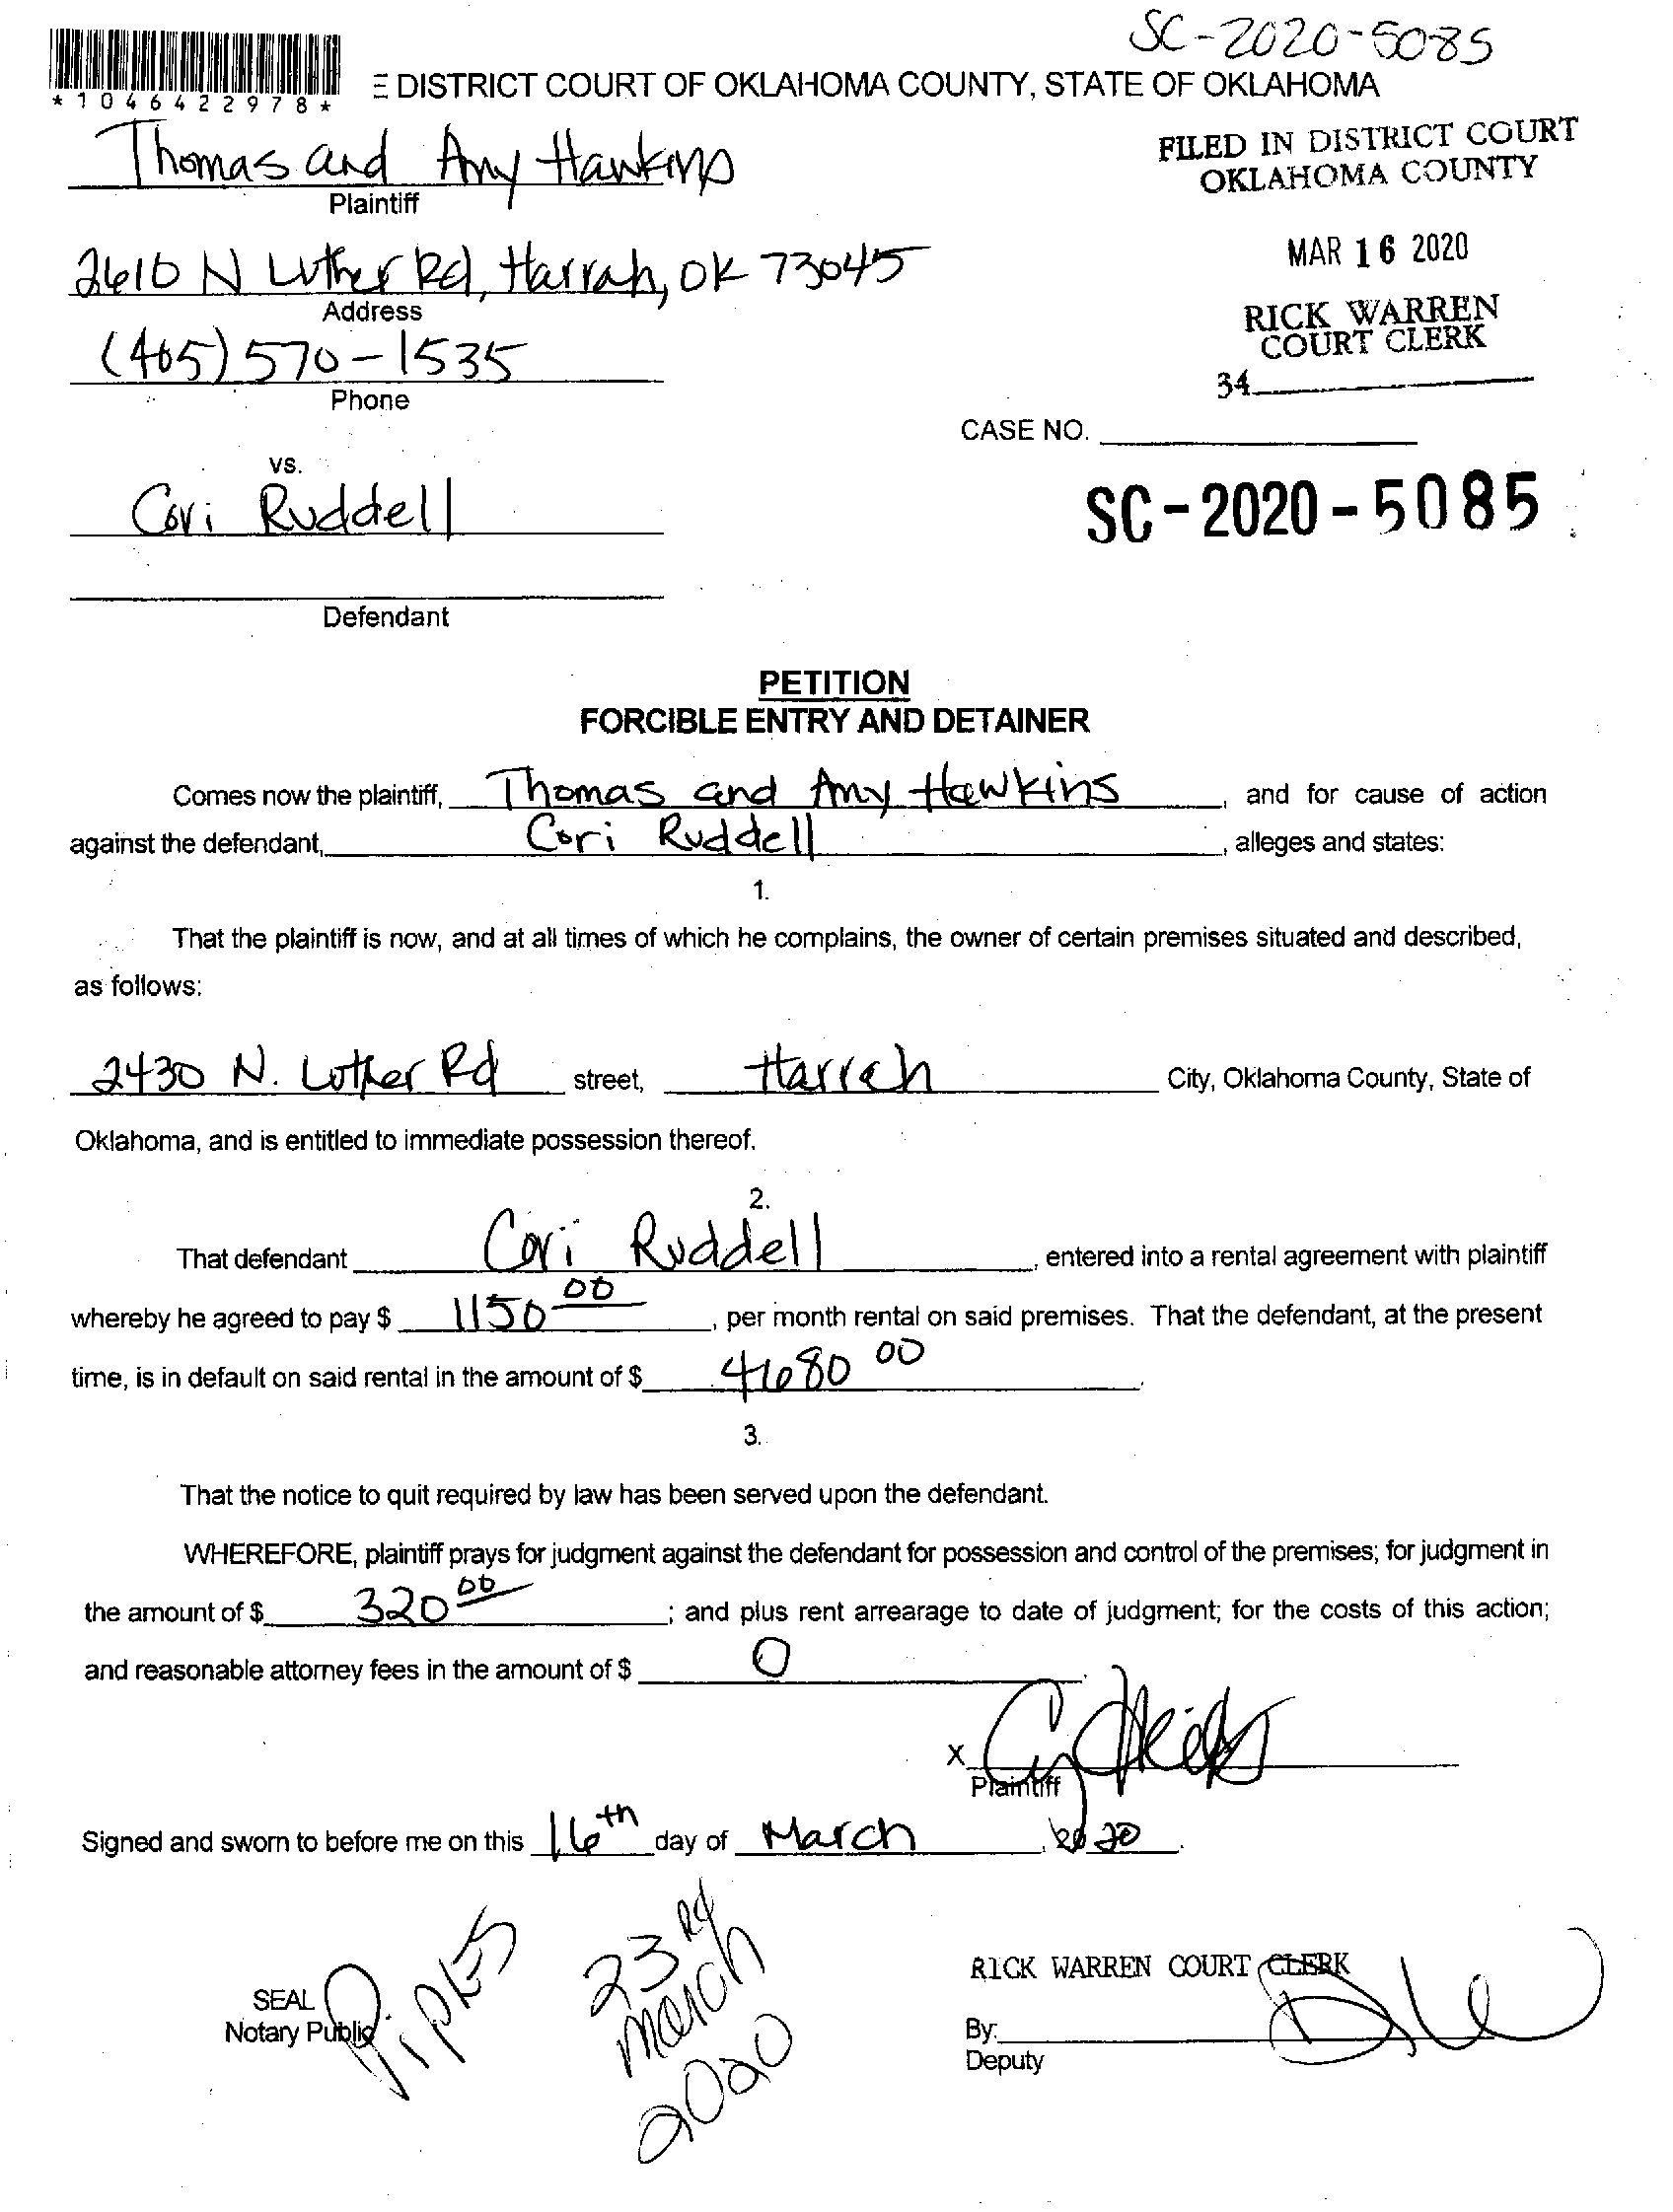 SC-2020-5085
*1046422978*
E DISTRICT COURT OF OKLAHOMA COUNTY, STATE OF OKLAHOMA
Thomas and Amy Hawkins
Plaintiff
FILED IN DISTRICT COURT
OKLAHOMA COUNTY
2610 N Luther Rd, Harrah, OK 73045
Address
MAR 16 2020
(405) 570-1535
Phone
RICK WARREN
COURT CLERK
34
CASE NO.
vs.
Cori Ruddell
SC-2020-5085
Defendant
PETITION
FORCIBLE ENTRY AND DETAINER
Comes now the plaintiff, Thomas and Amy Hawkins, and for cause of action
against the defendant, Cori Ruddell, alleges and states:
1.
That the plaintiff is now, and at all times of which he complains, the owner of certain premises situated and described,
as follows:
2430 N. Luther Rd street, Harrah City, Oklahoma County, State of
Oklahoma, and is entitled to immediate possession thereof.
2.
That defendant Cori Ruddell, entered into a rental agreement with plaintiff
whereby he agreed to pay $ 1150 00, per month rental on said premises. That the defendant, at the present
time, is in default on said rental in the amount of $ 4680 00.
3.
That the notice to quit required by law has been served upon the defendant.
WHEREFORE, plaintiff prays for judgment against the defendant for possession and control of the premises; for judgment in
the amount of $ 320 00; and plus rent arrearage to date of judgment; for the costs of this action;
and reasonable attorney fees in the amount of $ 0.
X
Plaintiff
Signed and sworn to before me on this 16th day of March, 2020.
SEAL
Notary Public
Pipkes
23rd
March
2020
RICK WARREN COURT CLERK
By:
Deputy